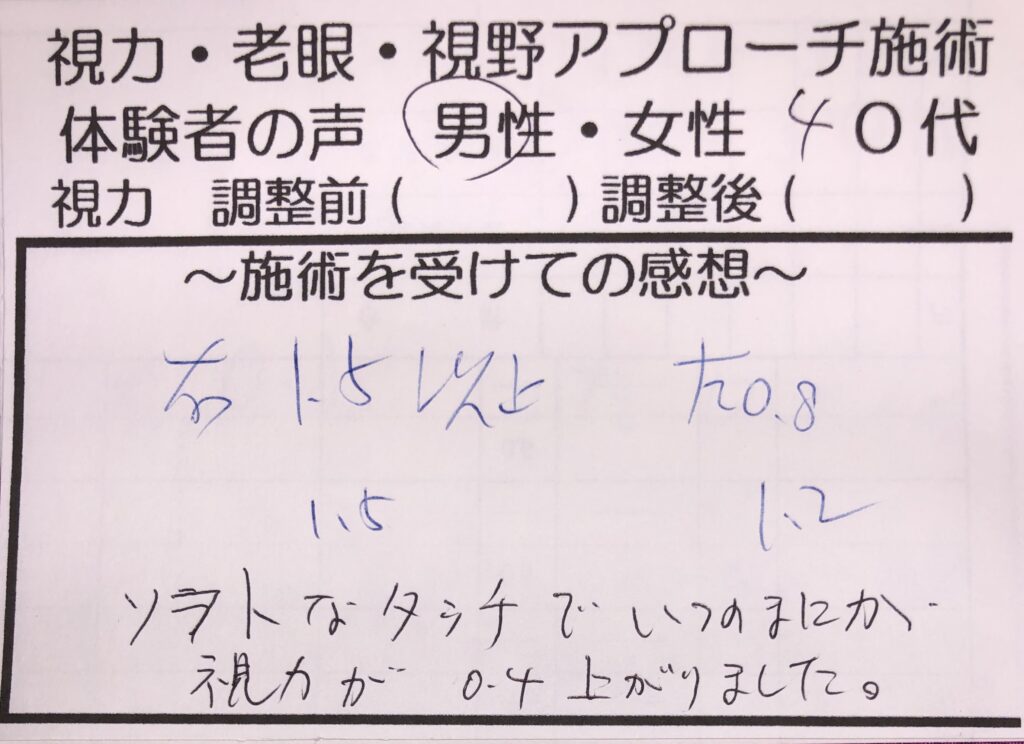 視力・老眼・視野アプローチ施術
体験者の声 男性・女性 40代
視力 調整前( )調整後( )
～施術を受けての感想～
右 1.5以上 左0.8
1.5 1.2
ソフトなタッチでいつのまにか
視力が 0.4 上がりました。